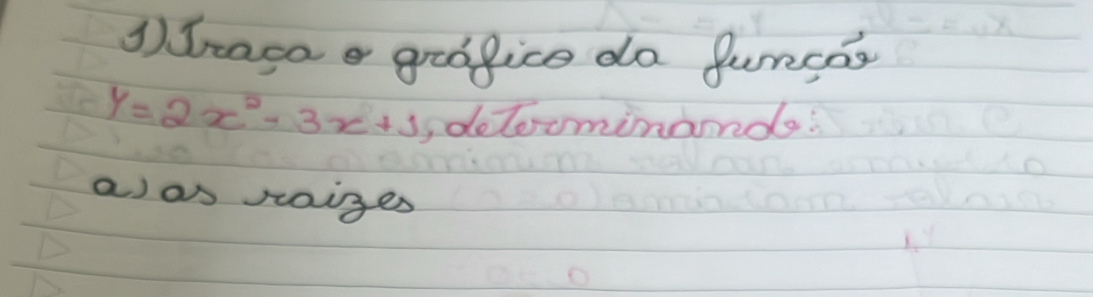 1) Traça o gráfico da função
y = 2x² - 3x + 1, determinando:
a) as raizes